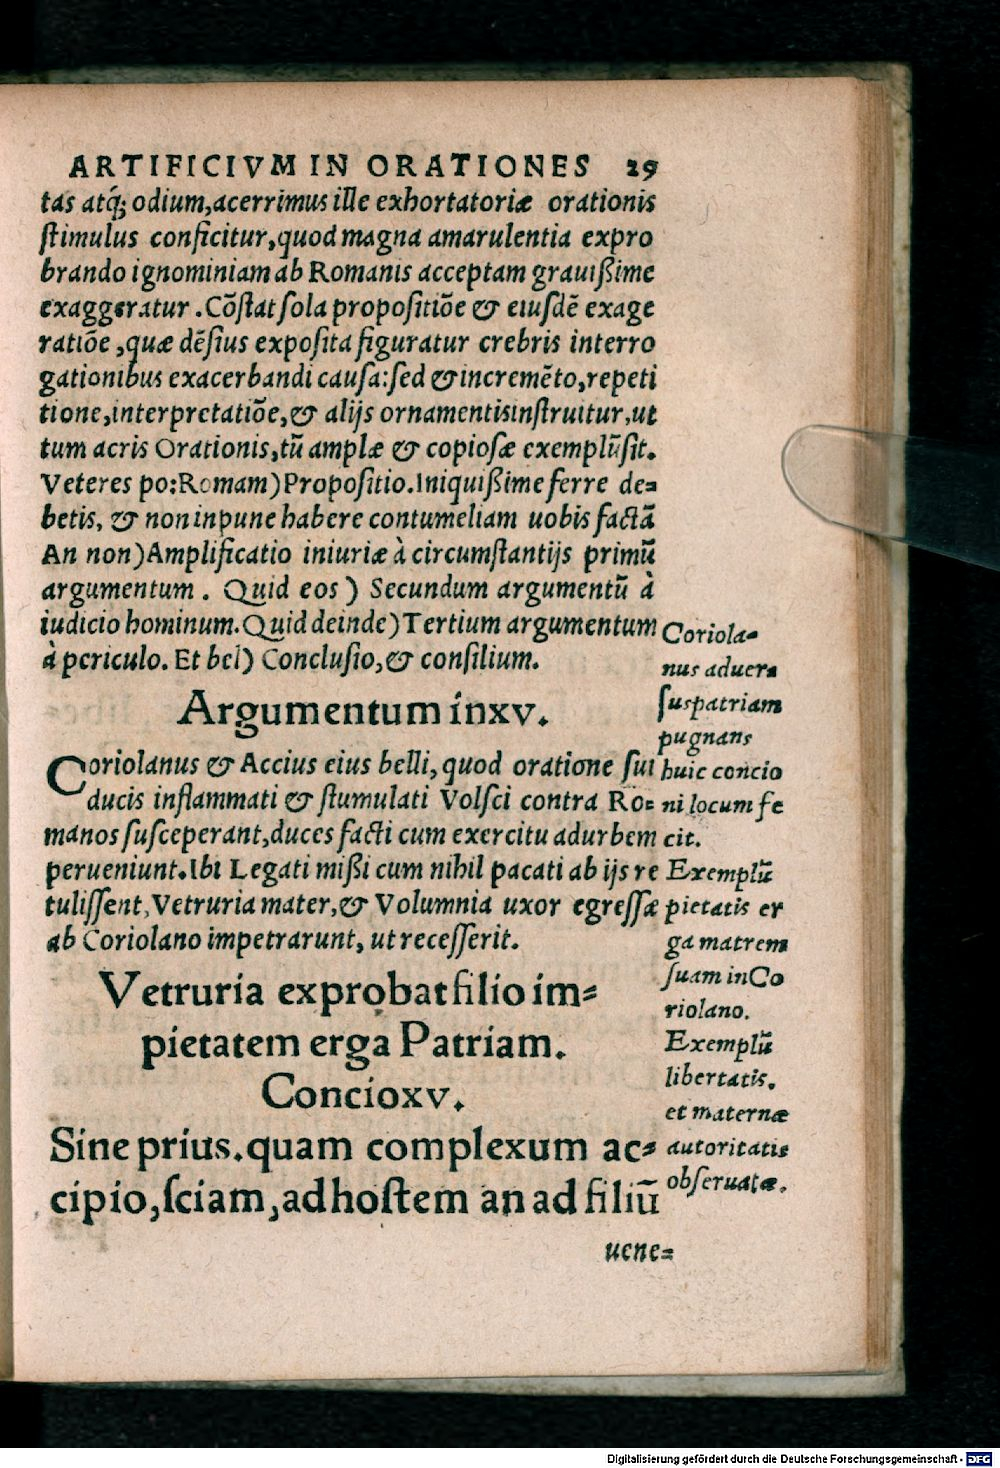 ARTIFICIVM IN ORATIONES 29
tas atq́; odium, acerrimus ille exhortatoriæ orationis
stimulus conficitur, quod magna amarulentia expro
brando ignominiam ab Romanis acceptam grauißime
exaggeratur. Cõstat sola propositiõe & eiusdẽ exage
ratiõe, quæ dẽsius exposita figuratur crebris interro
gationibus exacerbandi causa: sed & incremẽto, repeti
tione, interpretatiõe, & alijs ornamentis instruitur, ut
tum acris Orationis, tũ amplæ & copiosæ exemplũ sit.
Veteres po: Romam) Propositio. Iniquißime ferre de=
betis, & non inpune habere contumeliam uobis factã
An non) Amplificatio iniuriæ à circumstantijs primũ
argumentum. Quid eos) Secundum argumentũ à
iudicio hominum. Quid deinde) Tertium argumentum
à periculo. Et bel) Conclusio, & consilium.
Argumentum in xv.
Coriolanus & Accius eius belli, quod oratione sui
ducis inflammati & stumulati Volsci contra Ro=
manos susceperant, duces facti cum exercitu ad urbem
perueniunt. Ibi Legati mißi cum nihil pacati ab ijs re
tulissent, Vetruria mater, & Volumnia uxor egressæ
ab Coriolano impetrarunt, ut recesserit.
Vetruria exprobat filio im=
pietatem erga Patriam.
Concio xv.
Sine prius. quam complexum ac=
cipio, sciam, ad hostem an ad filiũ
uene=
Coriola=
nus aduer=
sus patriam
pugnans
huic concio
ni locum fe
cit.
Exemplũ
pietatis er
ga matrem
suam in Co
riolano.
Exemplũ
libertatis.
et maternæ
autoritatis
obseruatæ.
Digitalisierung gefördert durch die Deutsche Forschungsgemeinschaft - DFG